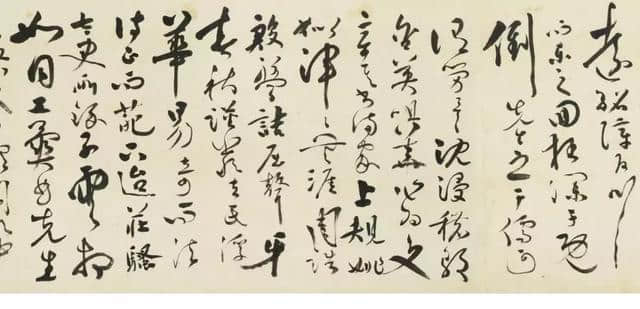 遠紹障百川
而東之回狂瀾于既
倒先生之于儒可
謂勞矣沈浸醲郁
含英咀華作為文
章其書滿家上規姚
姒渾渾無涯周誥
殷盤詰屈聱牙
春秋謹嚴左氏浮
華易奇而法
詩正而葩下逮莊騷
太史所錄子雲相
如同工異曲先生